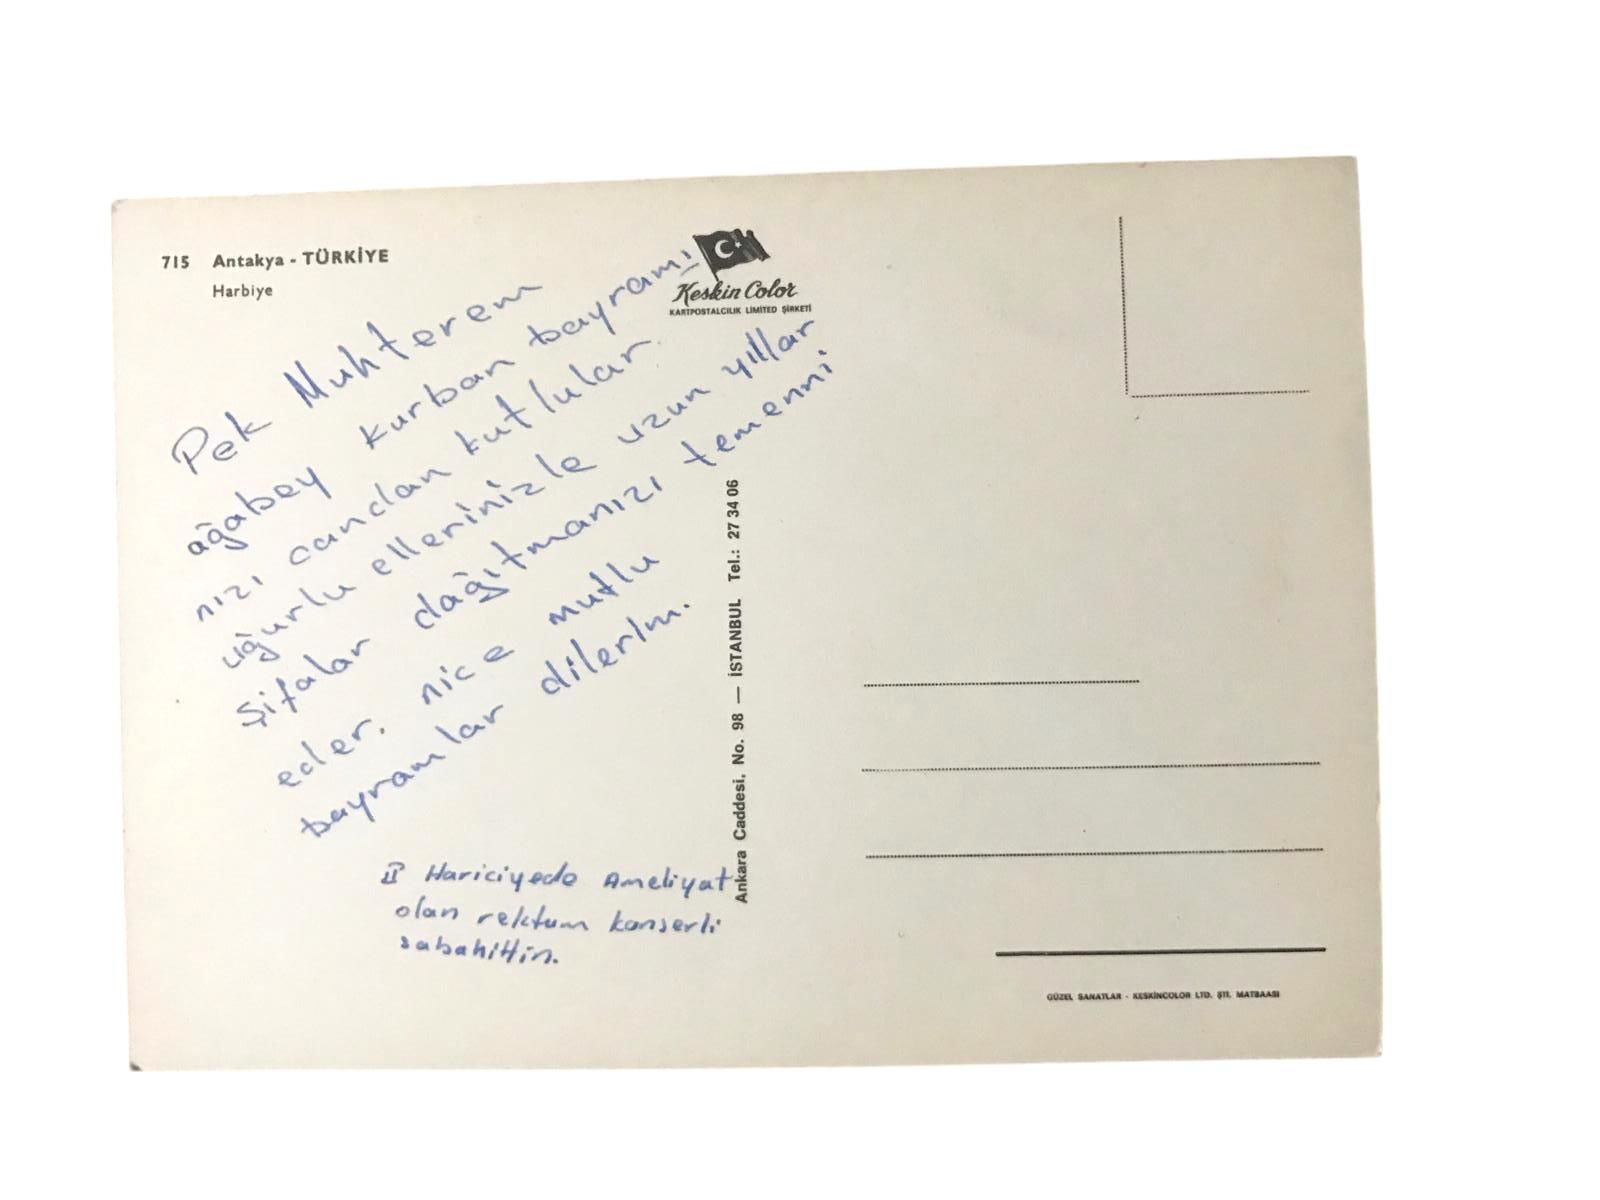 715 Antakya - TÜRKİYE
Harbiye
Keskin Color
KARTPOSTALCILIK LIMITED ŞİRKETİ
Pek Muhterem
ağabey kurban bayramı
nızı candan kutlular.
uğurlu ellerinizle uzun yıllar
şifalar dağıtmanızı temenni
eder. nice mutlu
bayramlar dilerim.
II Hariciyede Ameliyat
olan rektum konserli
sabahittin.
Ankara Caddesi, No. 98 — İSTANBUL Tel.: 27 34 06
GÜZEL SANATLAR - KESKİNCOLOR LTD. ŞTİ. MATBAASI